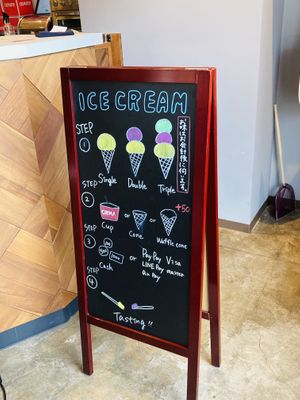 ICE CREAM
STEP
1
Single
Double
Triple
STEP
2
CREMA
+50
Cup
or
Cone
or
Waffle cone
STEP
3
Cash
or
PayPay Visa
LINE Pay master
au Pay
STEP
4
Tasting!!